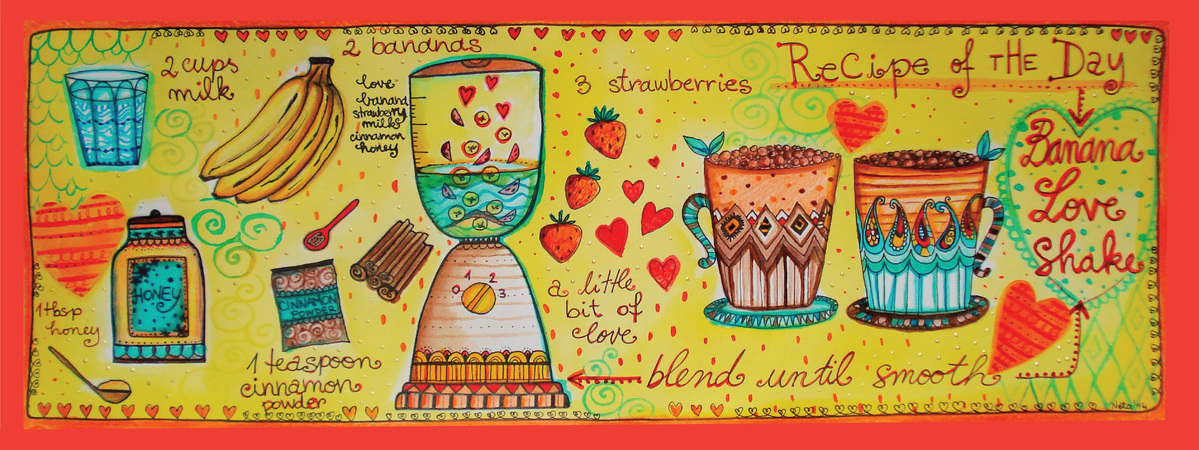 Recipe of THE Day
Banana
Love
Shake
2 cups
milk
2 bananas
love
banana
strawberry
milk
cinnamon
honey
3 strawberries
HONEY
1 tbsp
honey
CINNAMON
POWDER
1 teaspoon
cinnamon
powder
0 1 2 3
a little
bit of
love
blend until smooth